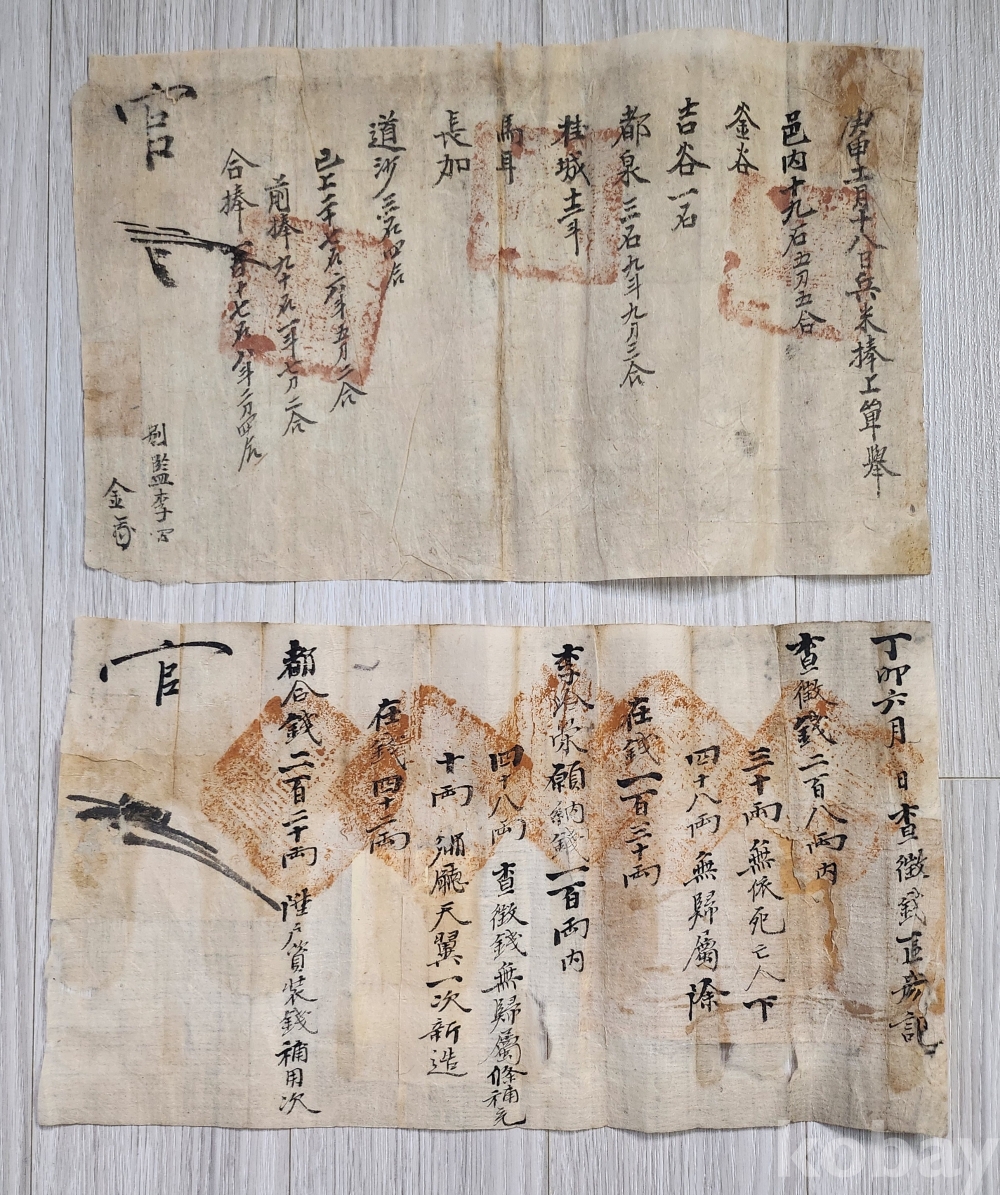 庚申十二月十八日兵米捧上單擧
邑內十九石五刀五合
釜谷
吉谷一石
都泉三石九斗九刀三合
桂城十二斗
馬耳
長加
道沙三石四合
已上二十七石六斗五刀二合
前捧九十石一斗七刀二合
合捧
別監李
金
官
丁卯六月 日查徵錢區劃記
查徵錢二百八兩內
三十兩無依死亡人下
四十八兩無歸屬除
在錢一百三十兩
李 願納錢一百兩內
四十八兩查徵錢無歸屬條補充
十兩 廳天翼一次新造
在錢四十二兩
都合錢二百二十兩陞戶資裝錢補用次
官
kobay